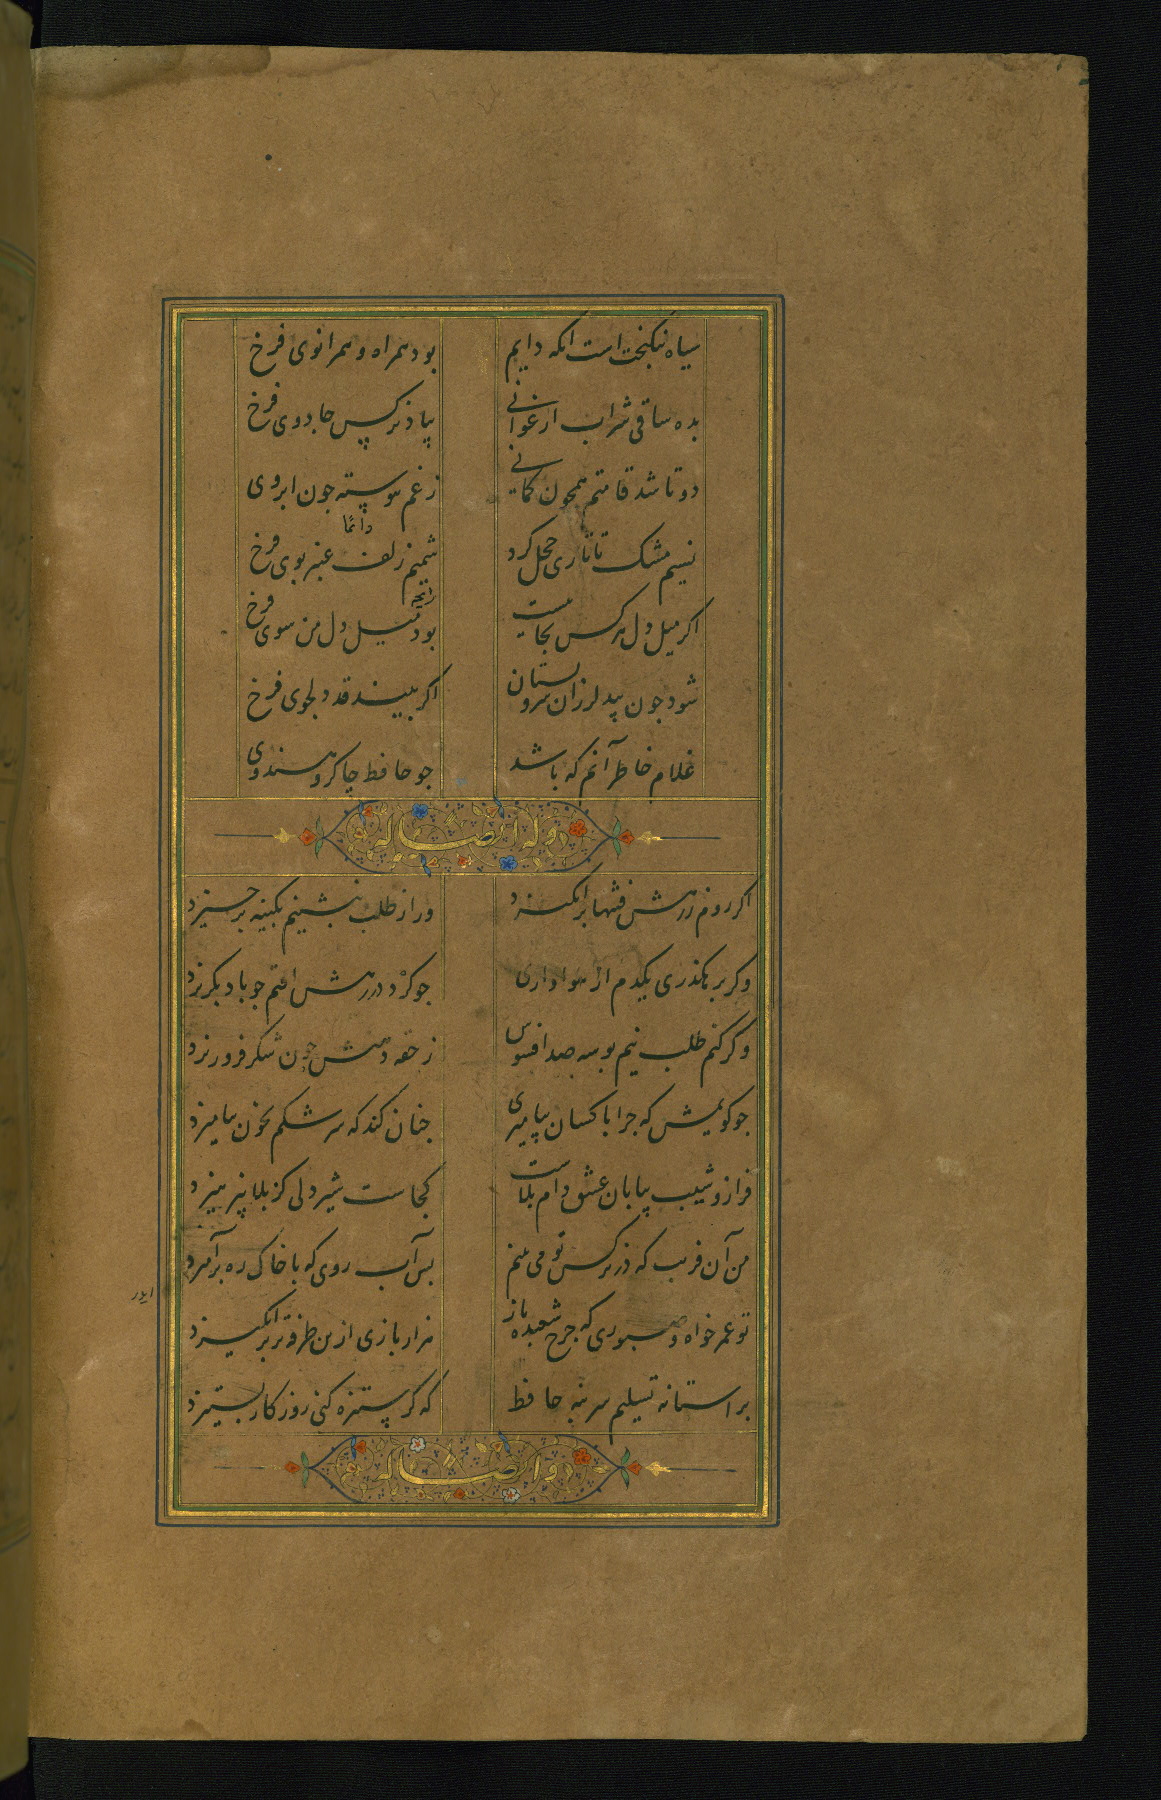 سیاه نیکبخت است انکه دایم
بود همراه و همزانوی فرخ
بده ساقی شراب ارغوانی
بیاد نرکس جادوی فرخ
دوتا شد قامتم همچون کمانی
ز غم پیوسته جون ابروی
نسیم مشک تاتاری خجل کرد
دائما
شمیم زلف عنبر بوی فرخ
رایحه
اکر میل دل هر کس بجاییست
بود میل دل من سوی فرخ
شود جون بید لرزان سرو بستان
اکر بیند قد دلجوی فرخ
غلام خاطر آنم که باشد
جو حافظ چاکر و هندوی
وله ایضا له
اکر روم ز رهش فتنها برانکیزد
ور از طلب بنشینم بکینه برخیزد
وکر برهکذری یکدم از هواداری
جو کرد در رهش افتم جو باد بکریزد
وکر کنم طلب نیم بوسه صد افسوس
ز حقه دهنش چون شکر فرو ریزد
جو کویمش که جرا با کسان بیامیزی
جنان کند که سرشکم بخون بیامیزد
فراز و شیب بیابان عشق دام بلاست
کجاست شیردلی کز بلا نپرهیزد
من آن فریب که در نرکس تو می بینم
بس آب روی که با خاک ره برآمیزد
تو عمر خواه و صبوری که جرخ شعبده باز
هزار بازی ازین طرفه تر برانکیزد
بر استانه تسلیم سر بنه حافظ
که کر ستیزه کنی روزکار بستیزد
وله ایضا له